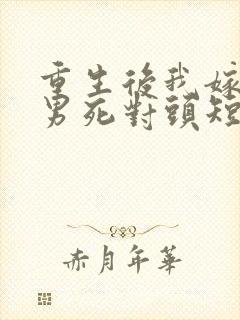 重生後我嫁
男死對頭短
赤月年華